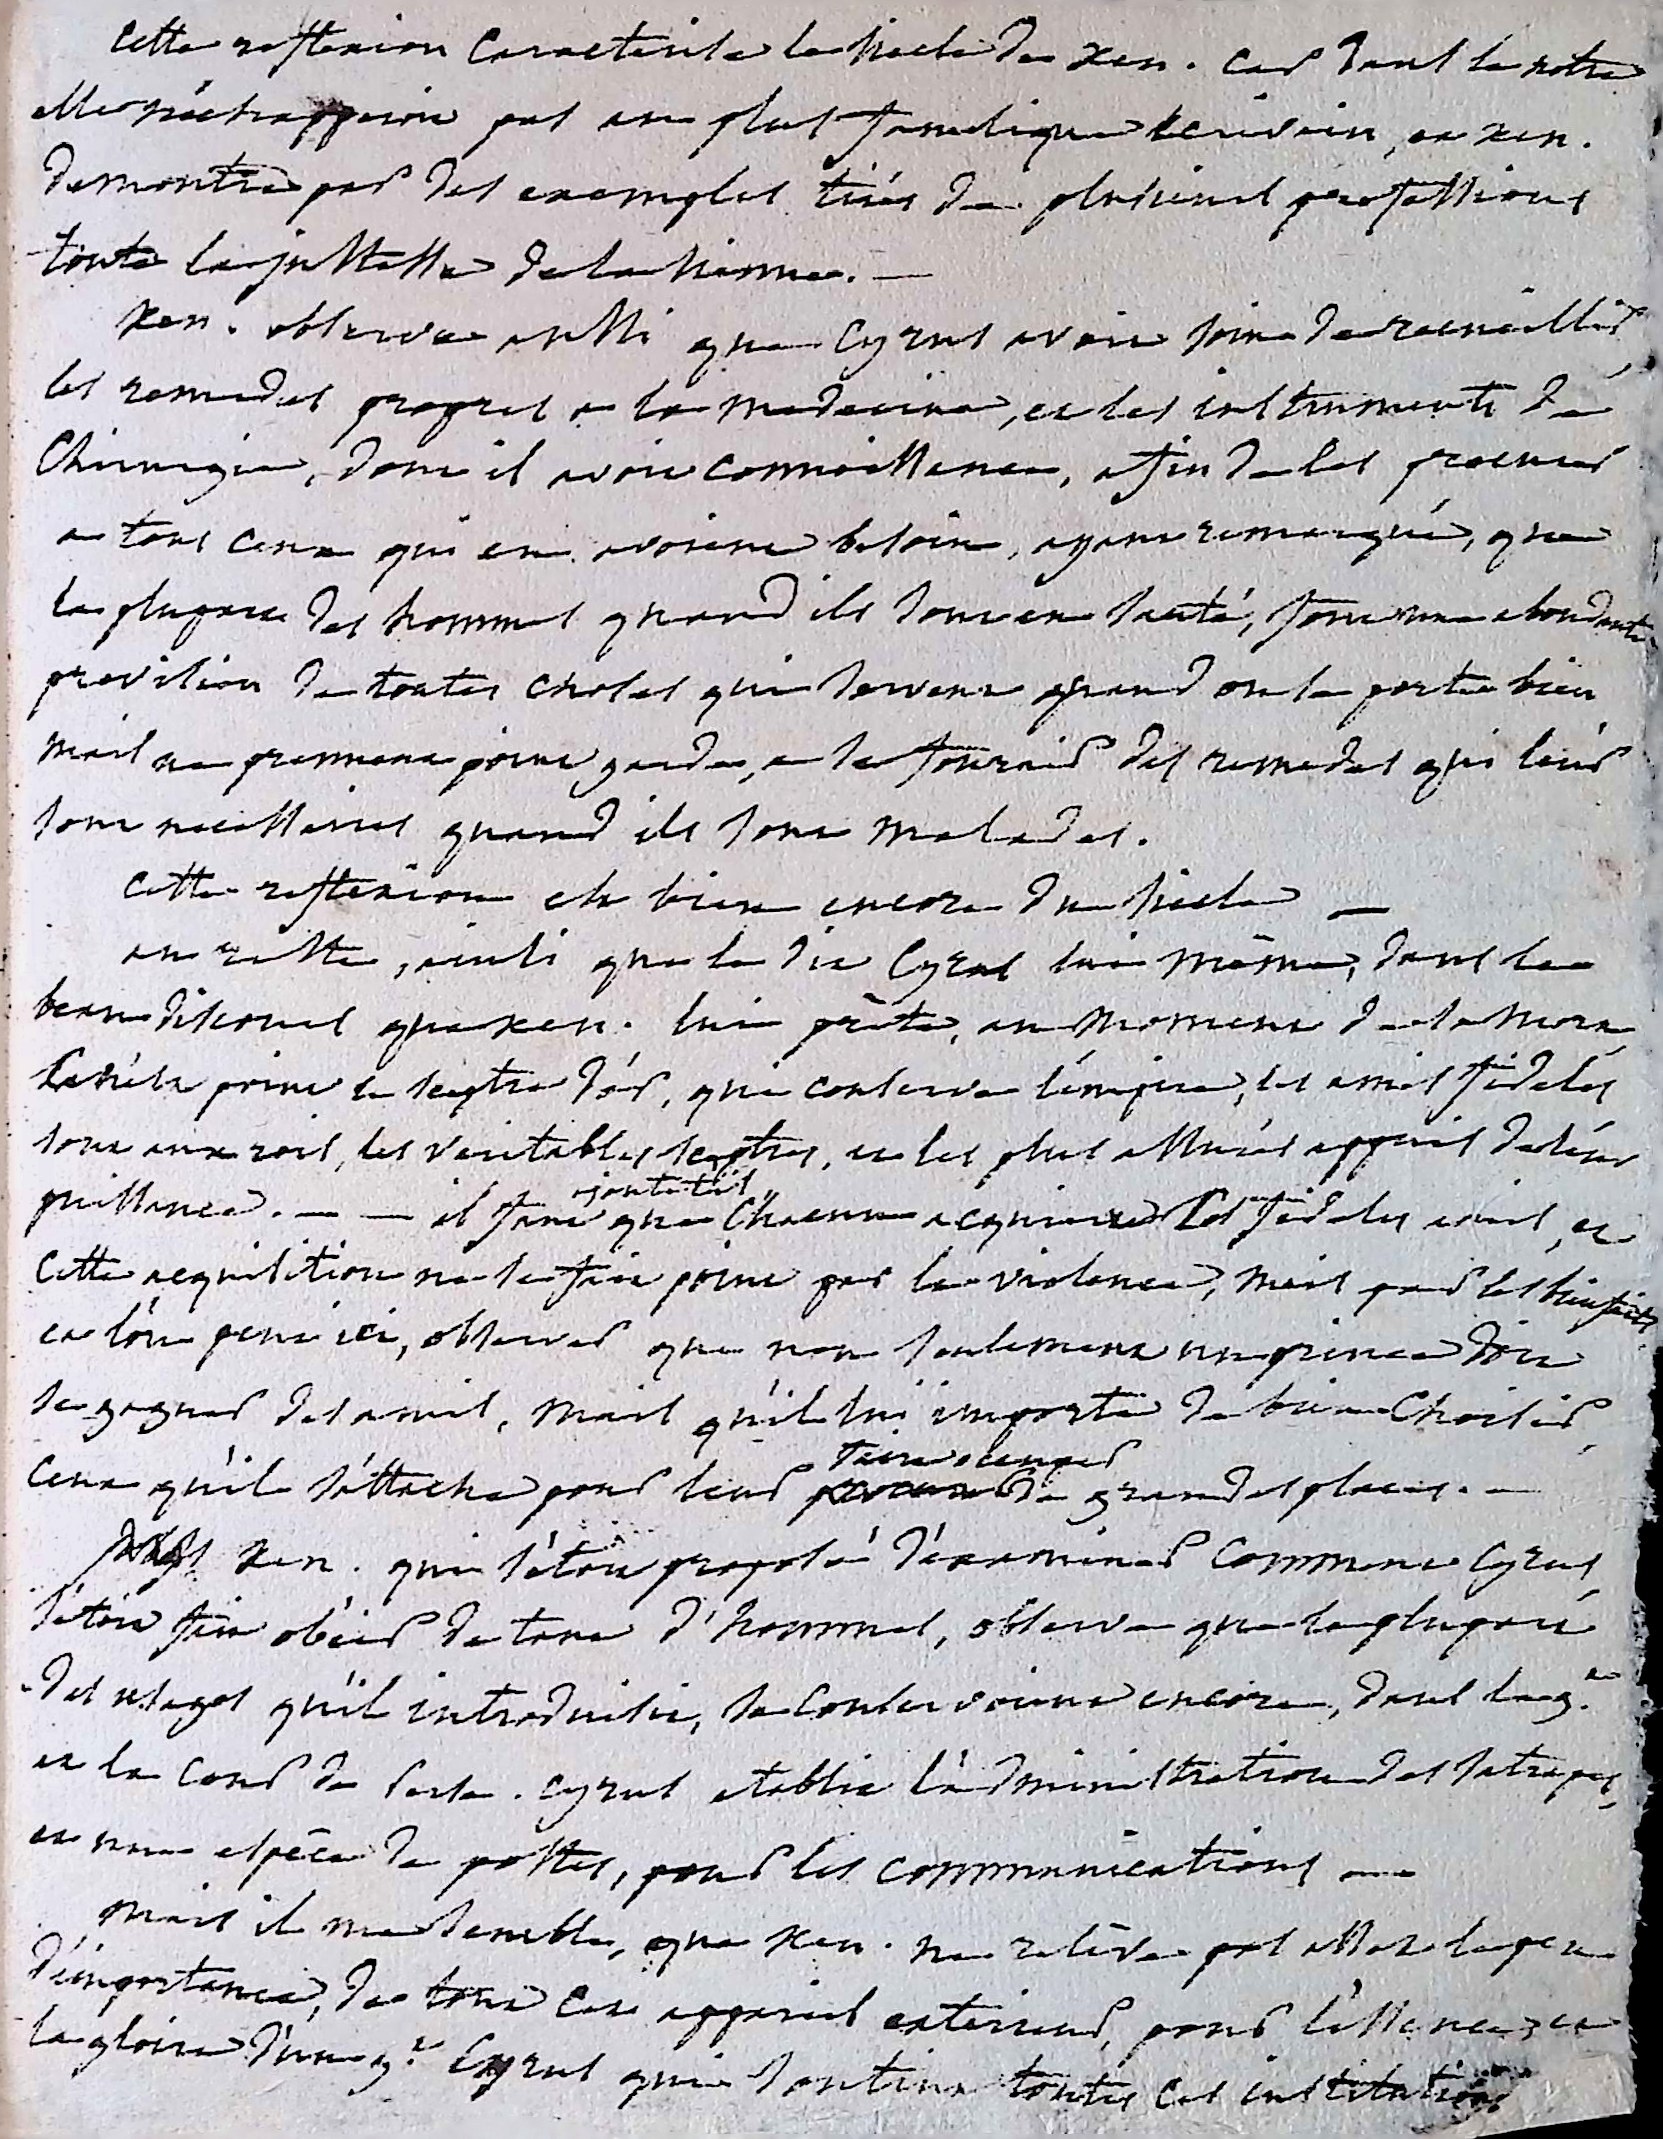 cette reflexion caracterise le siecle de xen. car dans le notre
elle n'échapperoit pas au plus famelique écrivain, et xen.
demontre par des exemples tirés de plusieurs professions
toute la justesse de la sienne. —
xen. observe aussi que Cyrus avoit soin de recueillir
les remedes propres a la medecine, et les instruments de
Chirurgie, dont il avoit connoissance, afin de les procurer
a tous ceux qui en avoient besoin, ayant remarqué, que
la plupart des hommes quand ils sont en santé, font une abondante
provision de toutes choses qui servent quand on se porte bien
mais ne prennent point garde, a se fournir des remedes qui leur
sont necessaires quand ils sont malades.
cette reflexion est bien encore du siecle —
au reste, ainsi que le dit Cyrus lui même, dans le
beau discours que xen. lui prête, au moment de sa mort,
ce n'est point le sceptre d'or, qui conserve l'empire, les amis fideles
sont aux rois, les veritables sceptres, et les plus assurés appuis de leur
puissance. — — il faut ajoute t'il que chacun acquiere des fideles amis, et
cette acquisition ne se fait point par la violence, mais par les bienfaits
et l'on peut ici, observer que non seulement un prince doit
se gagner des amis, mais qu'il lui importe de bien choisir,
ceux qu'il s'attache pour leur faire occuper de grandes places. —
xen. qui s'étoit proposé d'examiner comment Cyrus
s'étoit fait obéir de tant d'hommes, observe que la plupart
des usages qu'il introduisit, se conservoient encore, dans
et la cour de Perse. Cyrus etablit l'administration des satrapes,
et une espéce de postes, pour les communications —
mais il me semble, que xen. ne releve pas assez le peu
d'importance, de tout cet appareil exterieur, pour l'essence, et
la gloire d'un gd. Cyrus qui soutint toutes ces institutions